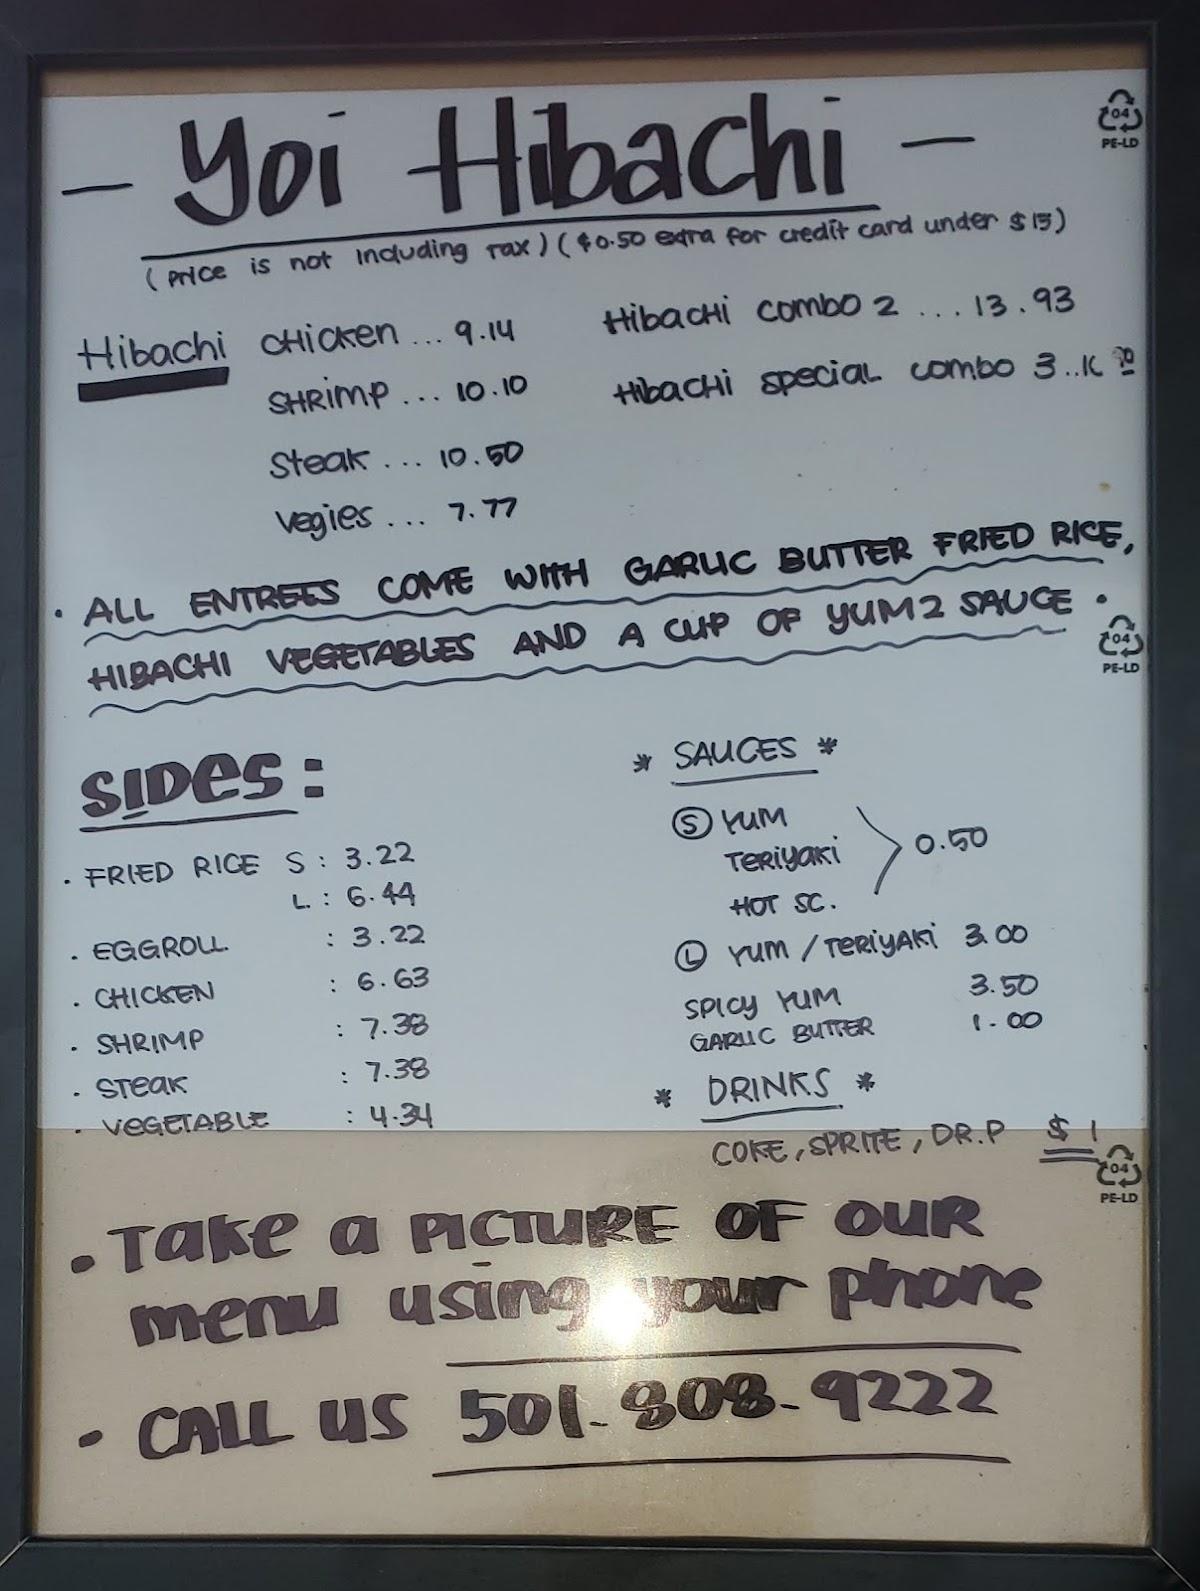 - Yoi Hibachi -
(Price is not including tax) ($0.50 extra for credit card under $15)
Hibachi CHicken ... 9.14
SHRimp ... 10.10
Steak ... 10.50
Vegies ... 7.77
HibacHi combo 2 ... 13.93
HibacHi special combo 3 ..
• ALL ENTREES COME WITH GARLIC BUTTER FRIED RICE,
HIBACHI VEGETABLES AND A CUP OF YUM2 SAUCE •
SIDes:
• FRIED RICE S : 3.22
L : 6.44
• EGGROLL : 3.22
• CHICKEN : 6.63
• SHRIMP : 7.38
• STEAK : 7.38
• VEGETABLE : 4.34
* SAUCES *
Ⓢ YUM
TERiyAKi > 0.50
HOT SC.
Ⓛ YUM / TERiyAKi 3.00
SPICY YUM 3.50
GARLIC BUTTER 1.00
* DRINKS *
COKE, SPRITE, DR.P $1
• Take a PICTURE OF OUR
menu using your phone
• CALL US 501-808-9222
04
PE-LD
04
PE-LD
04
PE-LD